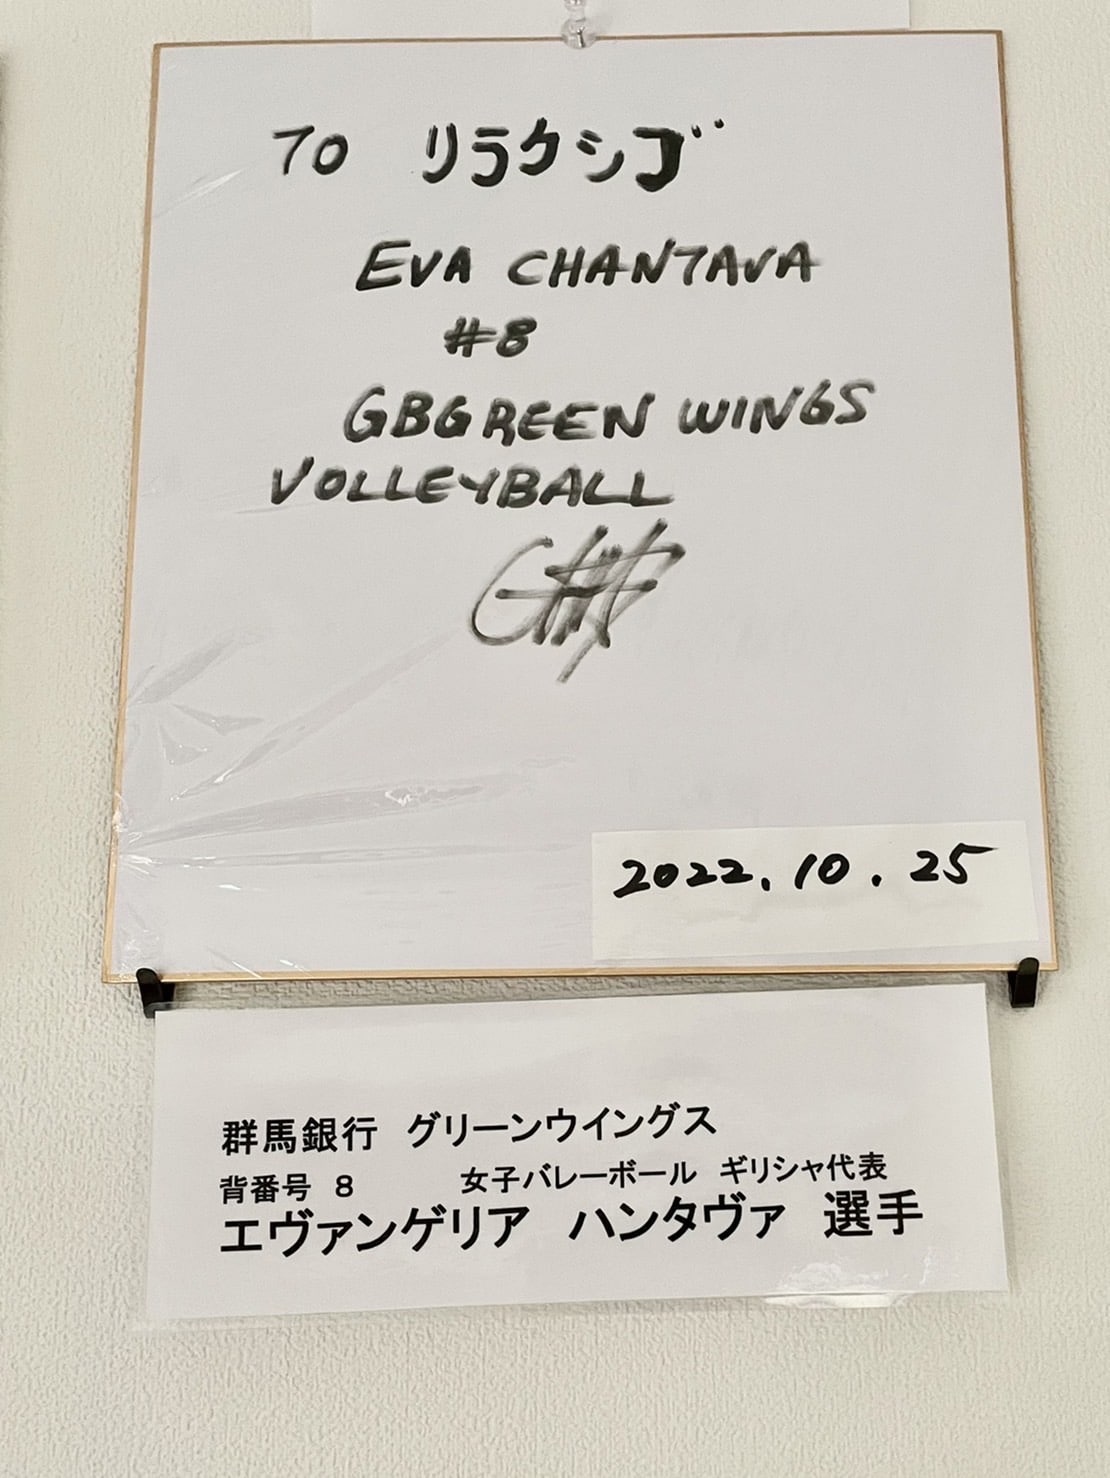 TO リラクシゴ
EVA CHANTAVA
#8
GBGREEN WINGS
VOLLEYBALL
2022.10.25
群馬銀行 グリーンウイングス
背番号 8 女子バレーボール ギリシャ代表
エヴァンゲリア ハンタヴァ 選手